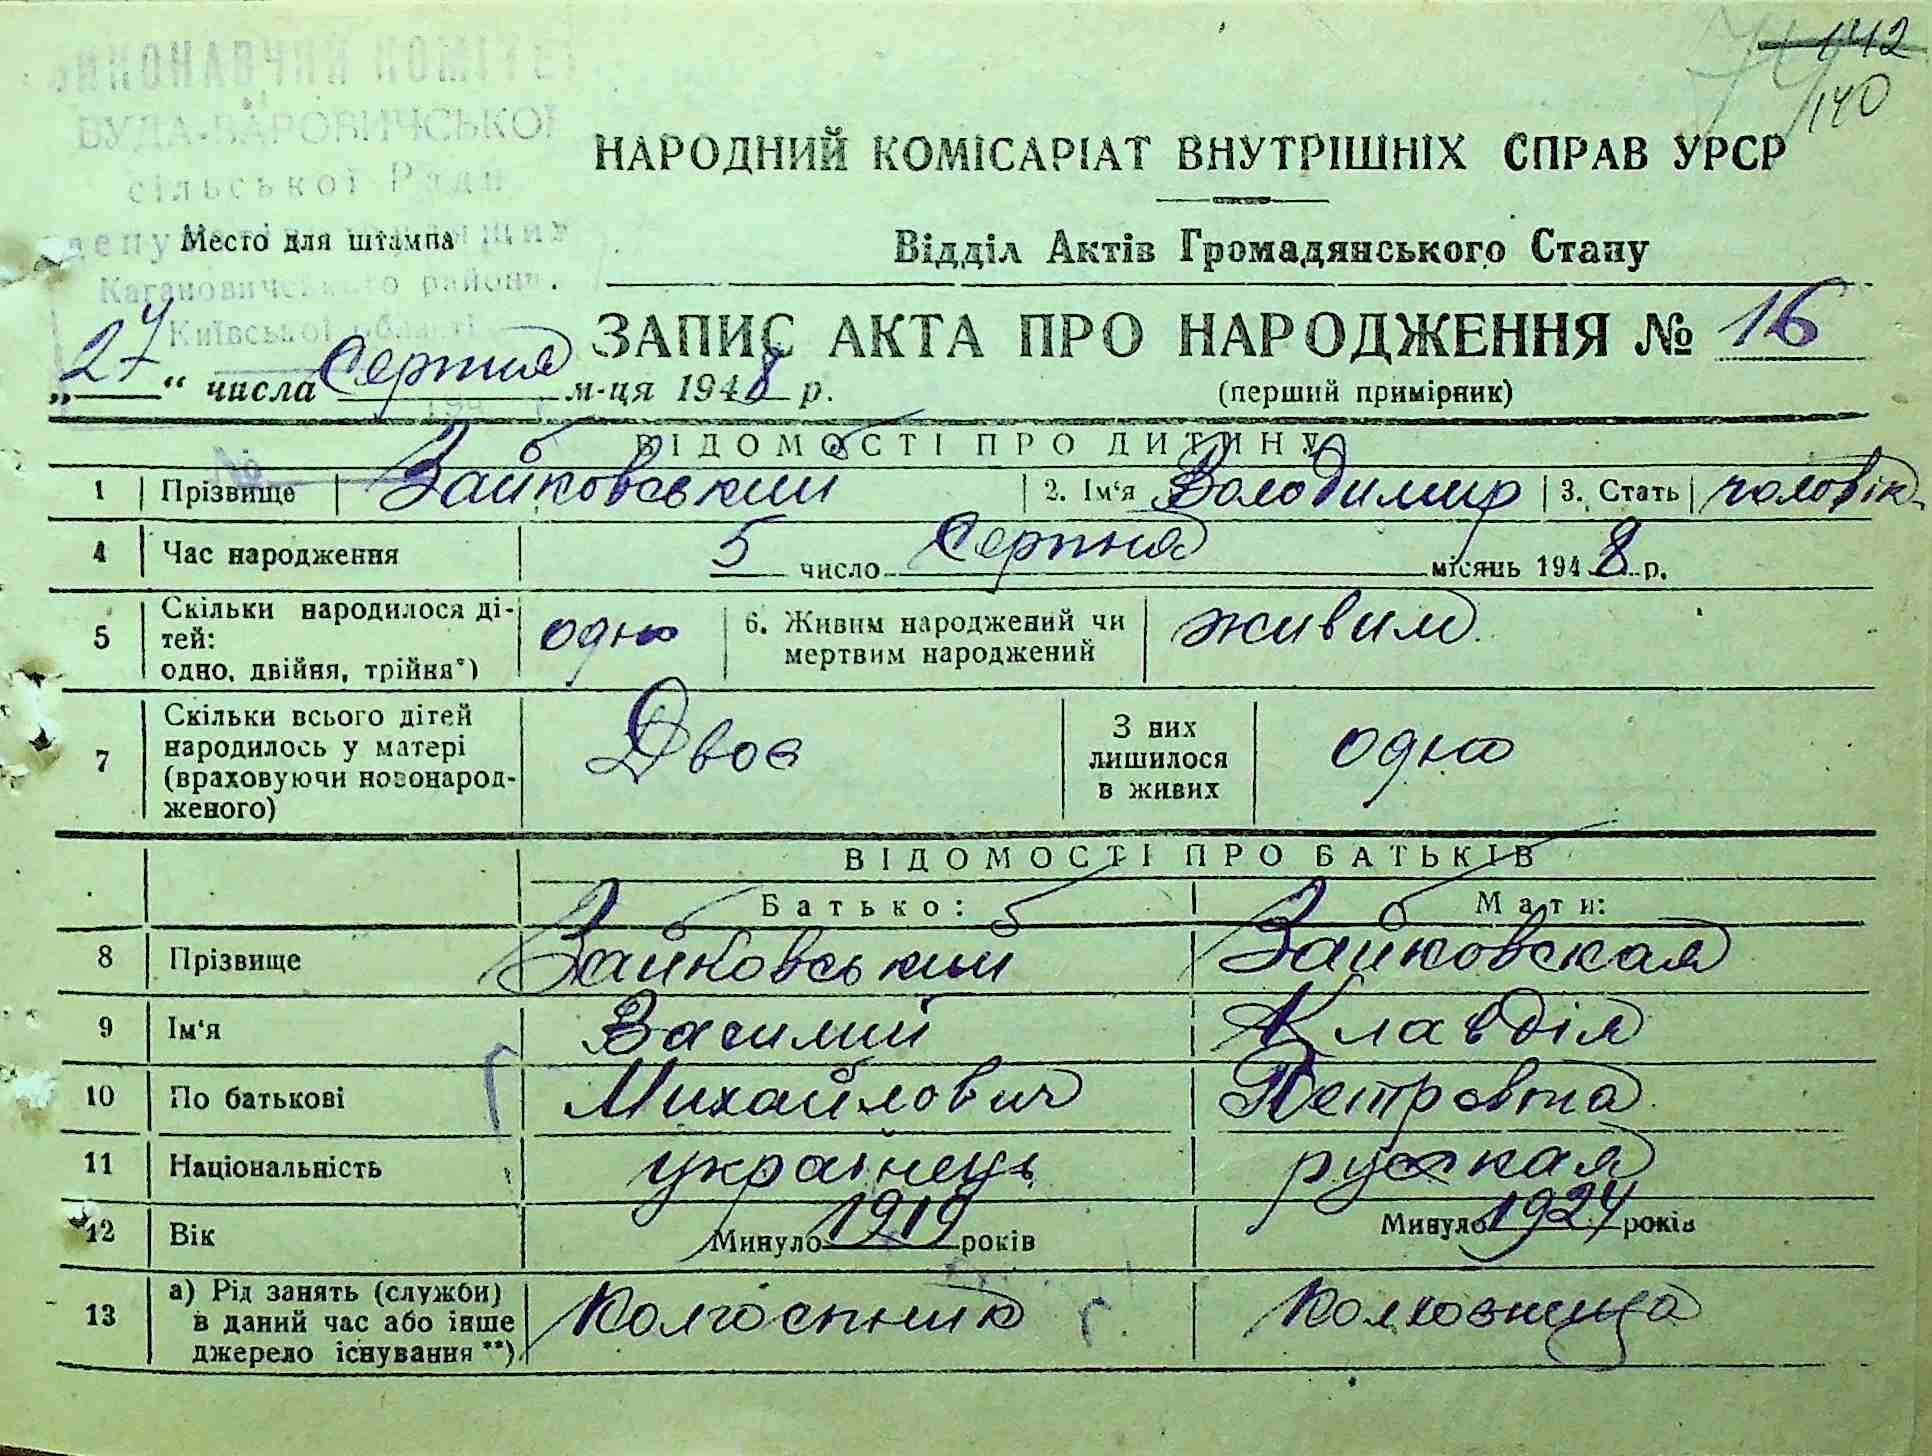 142
140
ВИКОНАВЧИЙ КОМІТЕТ
БУДА-ВАРОВИЧСЬКОЇ
сільської Ради
Кагановичського району
Київської області
Место для штампа
НАРОДНИЙ КОМІСАРІАТ ВНУТРІШНІХ СПРАВ УРСР
Відділ Актів Громадянського Стану
ЗАПИС АКТА ПРО НАРОДЖЕННЯ № 16
„27“ числа Серпня м-ця 1948 р.
(перший примірник)
ВІДОМОСТІ ПРО ДИТИНУ
№
1 Прізвище Зайковський 2. Ім‘я Володимир 3. Стать чоловік
4 Час народження 5 число Серпня місяць 1948 р.
5 Скільки народилося ді-
тей:
одно, двійня, трійня*) одно 6. Живим народжений чи
мертвим народжений живим
7 Скільки всього дітей
народилось у матері
(враховуючи новонарод-
женого) Двоє З них
лишилося
в живих одно
ВІДОМОСТІ ПРО БАТЬКІВ
Батько: Мати:
8 Прізвище Зайковський Зайковская
9 Ім‘я Василий Клавдія
10 По батькові Михайлович Петровна
11 Національність українець русская
12 Вік Минуло 1919 років Минуло 1924 років
13 а) Рід занять (служби)
в даний час або інше
джерело існування **) Колгоспник колхозница